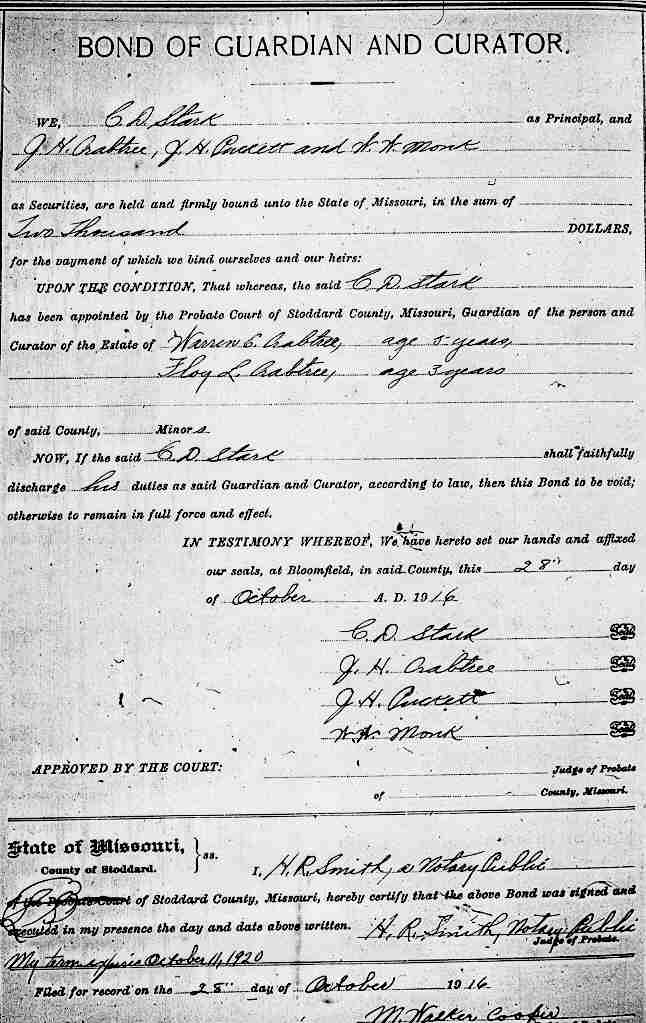 BOND OF GUARDIAN AND CURATOR.
WE, C. D. Stark as Principal, and
J. H. Crabtree, J. H. Puckett and W. W. Monk
as Securities, are held and firmly bound unto the State of Missouri, in the sum of
Two Thousand DOLLARS,
for the payment of which we bind ourselves and our heirs:
UPON THE CONDITION, That whereas, the said C. D. Stark
has been appointed by the Probate Court of Stoddard County, Missouri, Guardian of the person and
Curator of the Estate of Warren C. Crabtree, age 5 years,
Floy L. Crabtree, age 3 years
of said County, Minors
NOW, If the said C. D. Stark shall faithfully
discharge his duties as said Guardian and Curator, according to law, then this Bond to be void;
otherwise to remain in full force and effect.
IN TESTIMONY WHEREOF, We have hereto set our hands and affixed
our seals, at Bloomfield, in said County, this 28" day
of October A. D. 1916
C. D. Stark Seal
J. H. Crabtree Seal
J. H. Puckett Seal
W. W. Monk Seal
APPROVED BY THE COURT: Judge of Probate
of County, Missouri.
State of Missouri, } ss.
County of Stoddard. I, H. R. Smith, a Notary Public
of the Probate Court of Stoddard County, Missouri, hereby certify that the above Bond was signed and
executed in my presence the day and date above written. H. R. Smith, Notary Public
Judge of Probate.
My term expire October 11, 1920
Filed for record on the 28" day of October 1916
M. Walker Cooper